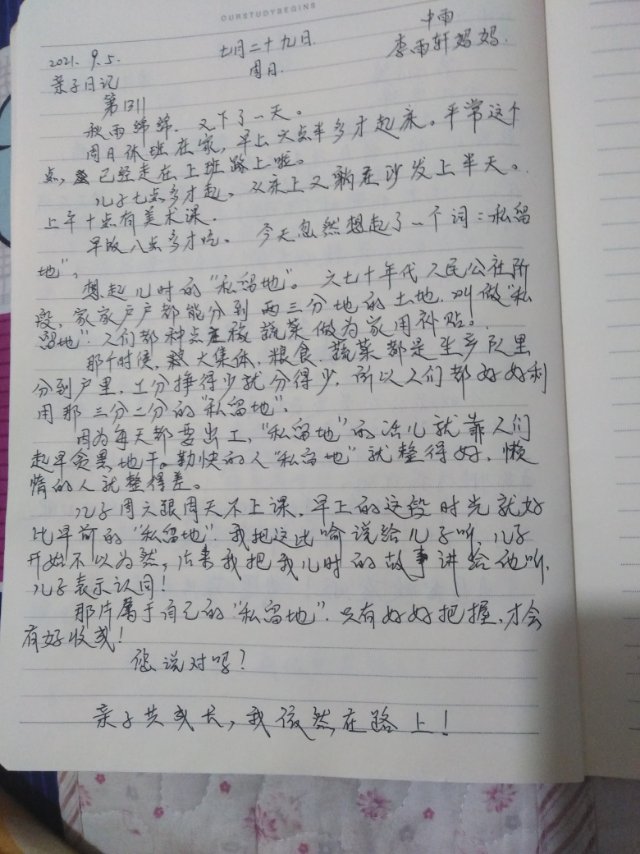 OURSTUDYBEGINS
2021. 9. 5. 七月二十九日. 中雨
亲子日记 周日. 李雨轩妈妈.
第1311
秋雨绵绵. 又下了一天。
周日休班在家, 早上六点半多才起床。平常这个
点, 已经走在上班路上啦。
儿子七点多才起. 从床上又躺在沙发上半天。
上午十点有美术课.
早饭八点多才吃。 今天忽然想起了一个词:“私留
地”,
想起儿时的“私留地”。六七十年代人民公社阶
段, 家家户户都能分到两三分地的土地. 叫做“私
留地”. 人们都种点蔬菜做为家用补贴。
那个时侯, 大集体, 粮食. 蔬菜都是生产队里
分到户里. 工分挣得少就分得少, 所以人们都好好利
用那三分二分的“私留地”.
因为每天都要出工, “私留地”的活儿就靠人们
起早贪黑地干。勤快的人“私留地”就整得好, 懒
惰的人就整得差。
儿子周六跟周天不上课, 早上的这段时光就好
比早前的“私留地”. 我把这比喻说给儿子听, 儿子
开始不以为然, 后来我把我儿时的故事讲给他听,
儿子表示认同!
那片属于自己的“私留地”. 只有好好把握, 才会
有好收成!
您说对吗?
亲子共成长, 我依然在路上!